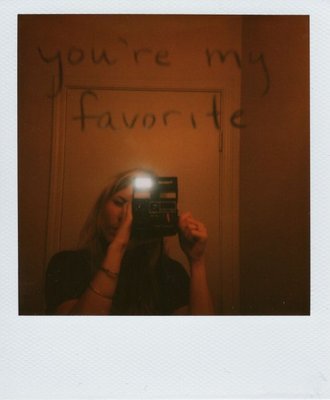 you're my
favorite